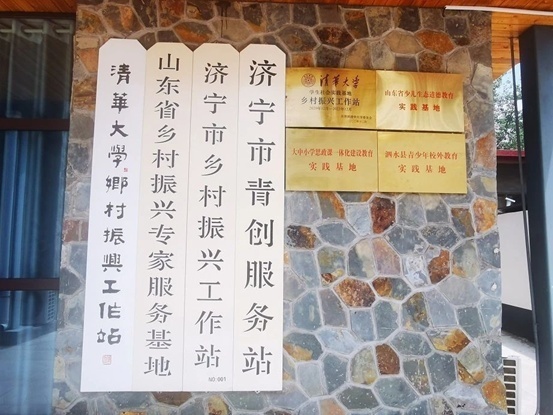 清華大學鄉村振興工作站
山东省乡村振兴专家服务基地
济宁市乡村振兴工作站
NO.001
济宁市青创服务站
清华大学
学生社会实践基地
乡村振兴工作站
山东省少儿生态道德教育
实践基地
大中小学思政课一体化建设教育
实践基地
泗水县青少年校外教育
实践基地